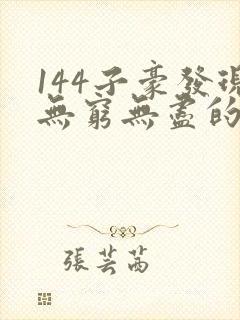 144子豪發現
無窮無盡的
張芸茜